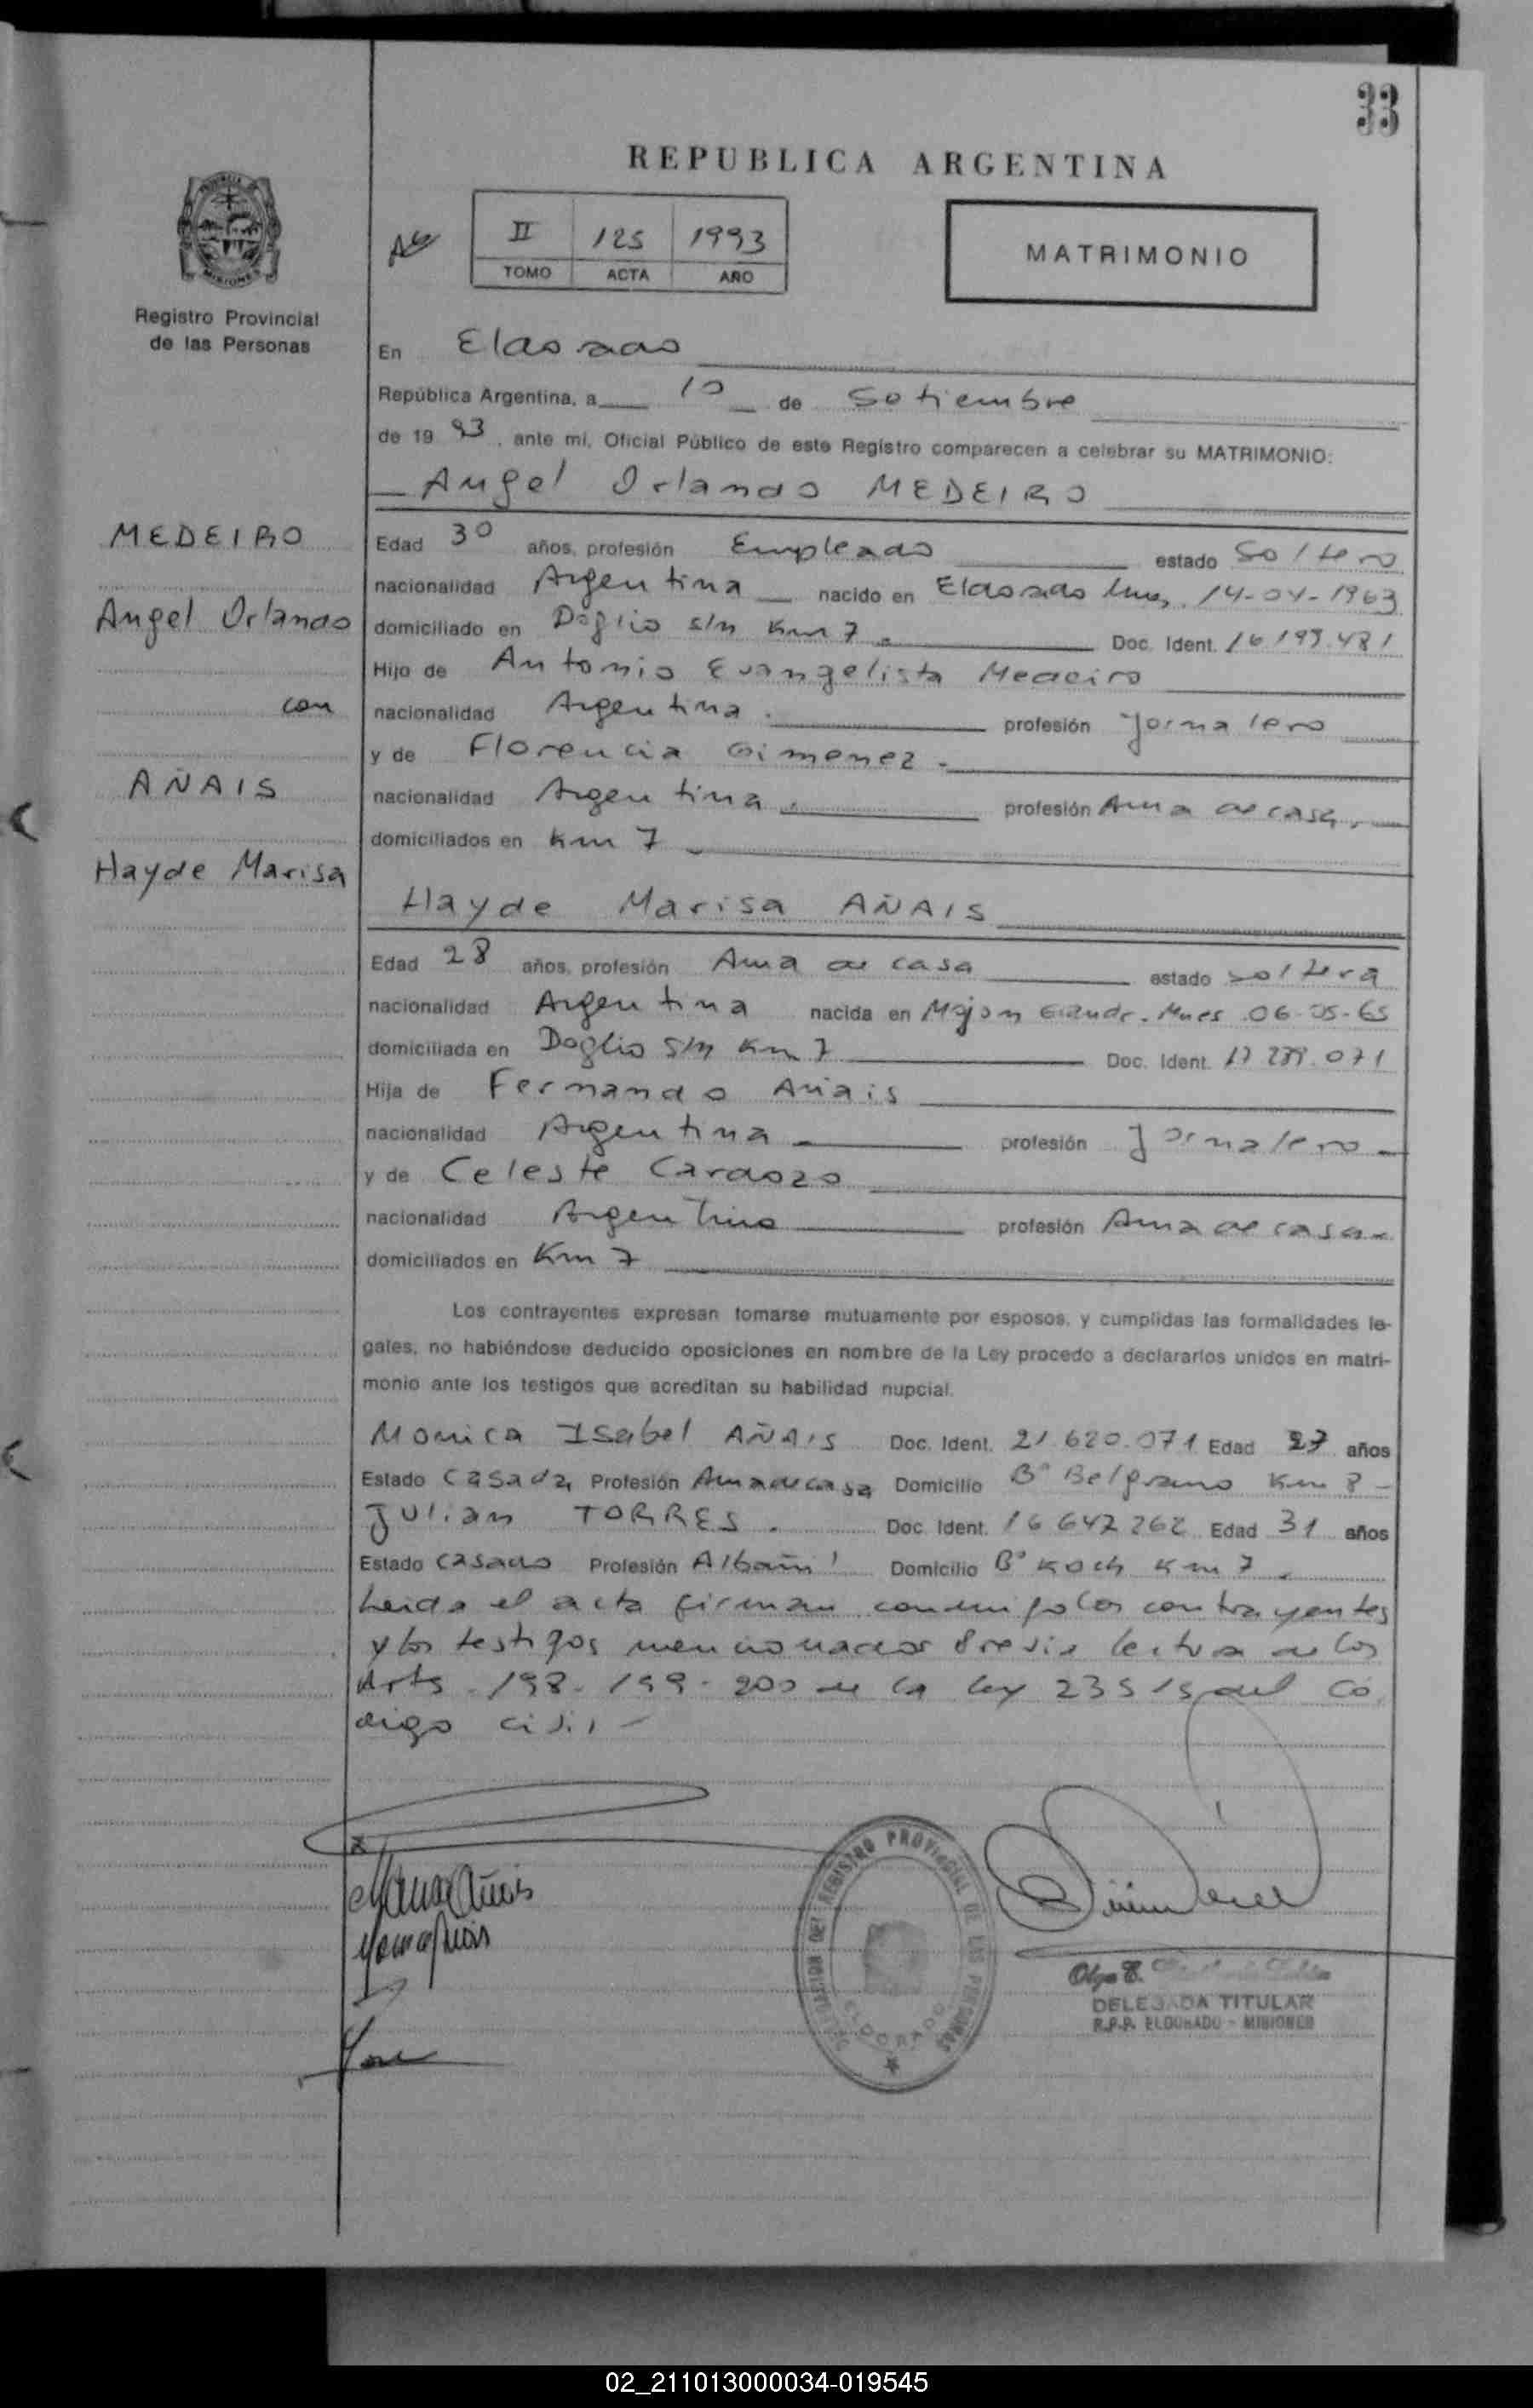 33
REPUBLICA ARGENTINA
II 125 1993
TOMO ACTA AÑO
MATRIMONIO
Registro Provincial
de las Personas
En Eldorado
República Argentina, a 10 de Setiembre
de 19 93, ante mi, Oficial Público de este Registro comparecen a celebrar su MATRIMONIO:
Angel Orlando MEDEIRO
MEDEIRO
Edad 30 años, profesión Empleado estado Soltero
nacionalidad Argentina nacido en Eldorado Mnes. 14-04-1963
Angel Orlando
domiciliado en Doglio s/n Km 7. Doc. Ident. 16.199.481
Hijo de Antonio Evangelista Medeiro
con
nacionalidad Argentina. profesión Jornalero
y de Florencia Gimenez.
AÑAIS
nacionalidad Argentina. profesión Ama de casa.
domiciliados en Km 7
Hayde Marisa
Hayde Marisa AÑAIS
Edad 28 años, profesión Ama de casa estado soltera
nacionalidad Argentina nacida en Mojon Grande. Mnes 06-05-65
domiciliada en Doglio S/n Km 7 Doc. Ident. 071
Hija de Fernando Añais
nacionalidad Argentina profesión Jornalero
y de Celeste Cardozo
nacionalidad Argentina profesión Ama de casa
domiciliados en Km 7
Los contrayentes expresan tomarse mutuamente por esposos, y cumplidas las formalidades le-
gales, no habiéndose deducido oposiciones en nombre de la Ley procedo a declararlos unidos en matri-
monio ante los testigos que acreditan su habilidad nupcial.
Monica Isabel AÑAIS Doc. Ident. 21.620.071 Edad 27 años
Estado Casada, Profesión Ama de casa Domicilio B° Belgrano Km 8
Julian TORRES. Doc. Ident. 16 647 262 Edad 31 años
Estado Casado Profesión Albañil Domicilio B° Koch Km 7.
Leida el acta firman conmigo los contrayentes
y los testigos mencionados previa lectura de los
Arts. 198. 199. 200 de la ley 23515 del Có
digo civil
DELEGACION DEL REGISTRO PROVINCIAL DE LAS PERSONAS
ELDORADO
Olga E.
DELEGADA TITULAR
R.P.P. ELDORADO - MISIONES
02_211013000034-019545